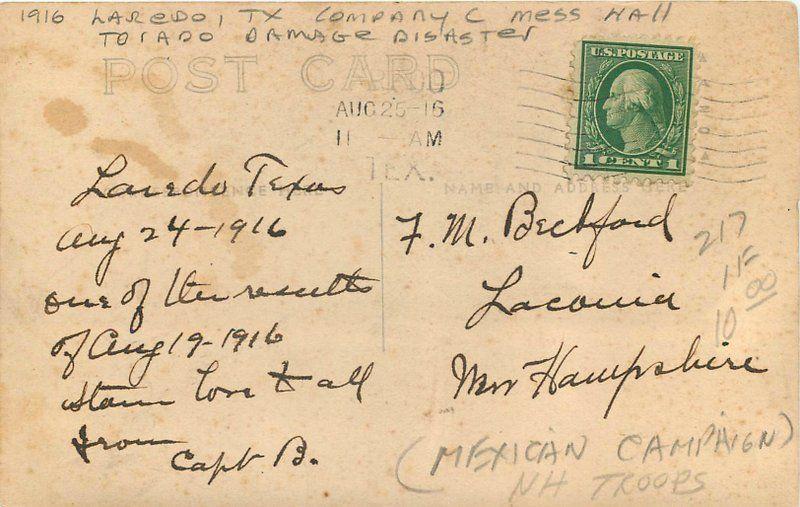 1916 LAREDO, TX COMPANY C MESS HALL
TORADO DAMAGE DISASTER
POST CARD
U.S. POSTAGE
1 CENT 1
AUG 25-16
11 — AM
TEX.
NAME AND ADDRESS HERE
Laredo Texas
Aug 24-1916
one of the results
of Aug 19-1916
storm love to all
from
Capt B.
F. M. Beckford
Laconia
New Hampshire
217
15
00
10
(MEXICAN CAMPAIGN)
NH TROOPS